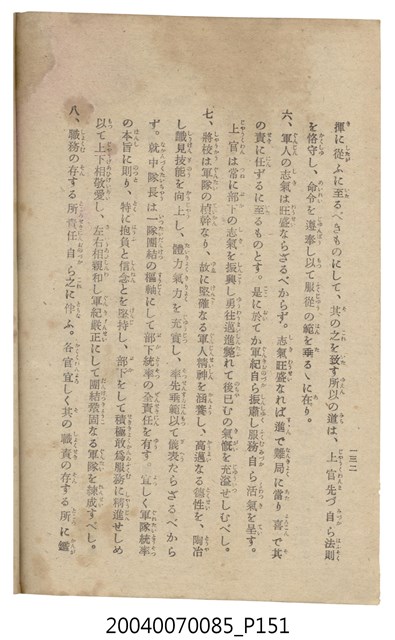 一三二
揮に從ふに至るべきものにして、其の之を致す所以の道は、上官先づ自ら法則
を恪守し、命令を遵奉し以て服從の範を垂るゝに在り。
六、軍人の志氣は旺盛ならざるべからず。志氣旺盛なれば進で難局に當り喜で其
の責に任ずるに至るものとす。是に於てか軍紀自ら振肅し服務自ら活氣を呈す。
上官は常に部下の志氣を振興し勇往邁進斃れて後已むの氣慨を充溢せしむべし。
七、將校は軍隊の楨幹なり、故に堅確なる軍人精神を涵養し、高邁なる德性を、陶冶
し識見技能を向上し、體力氣力を充實し、率先垂範以て儀表たらざるべから
ず。就中隊長は一隊團結の樞軸にして部下統率の全責任を有す。宜しく軍隊統率
の本旨に則り、特に抱負と信念とを堅持し、部下をして積極敢爲服務に精進せしめ
以て上下相敬愛し、左右相親和し軍紀嚴正にして團結鞏固なる軍隊を練成すべし。
八、職務の存する所責任自ら之に伴ふ。各官宜しく其の職責の存する所に鑑
20040070085_P151